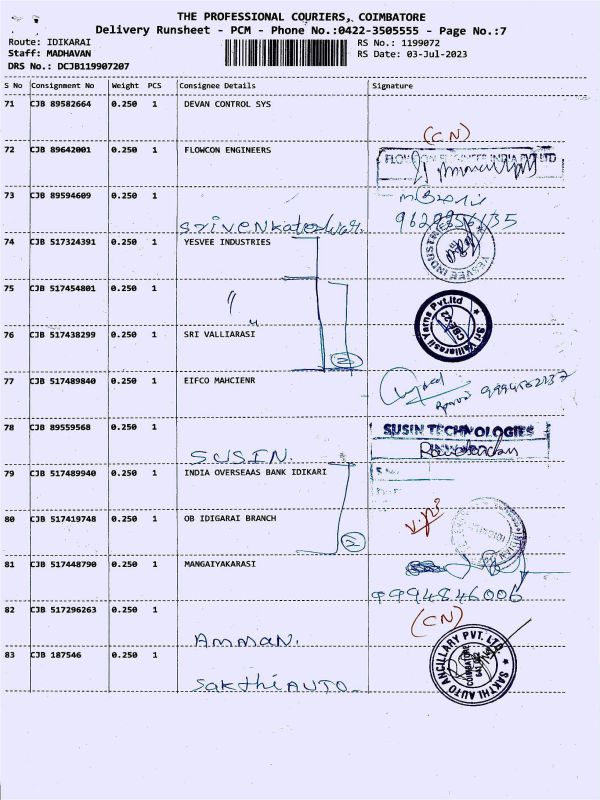 THE PROFESSIONAL COURIERS, COIMBATORE
Delivery Runsheet - PCM - Phone No.:0422-3505555 - Page No.:7
Route: IDIKARAI RS No.: 1199072
Staff: MADHAVAN RS Date: 03-Jul-2023
DRS No.: DCJB119907207
S No Consignment No Weight PCS Consignee Details Signature
71 CJB 89582664 0.250 1 DEVAN CONTROL SYS
(CN)
72 CJB 89642001 0.250 1 FLOWCON ENGINEERS
73 CJB 89594609 0.250 1
Srivenkateswar
74 CJB 517324391 0.250 1 YESVEE INDUSTRIES
YESVEE INDUSTRIES
75 CJB 517454801 0.250 1
"
76 CJB 517438299 0.250 1 SRI VALLIARASI
Sri Valliarasi Yarns Pvt.ltd
CBE-22
2
77 CJB 517489840 0.250 1 EIFCO MAHCIENR
78 CJB 89559568 0.250 1
SUSIN TECHNOLOGIES
SUSIN.
79 CJB 517489940 0.250 1 INDIA OVERSEAAS BANK IDIKARI
80 CJB 517419748 0.250 1 OB IDIGARAI BRANCH
81 CJB 517448790 0.250 1 MANGAIYAKARASI
9994846006
82 CJB 517296263 0.250 1
(CN)
AMMAN.
83 CJB 187546 0.250 1
SAKTHI AUTO ANCILLARY PVT. LTD.
COIMBATORE
641 022
Sakthi AUTO